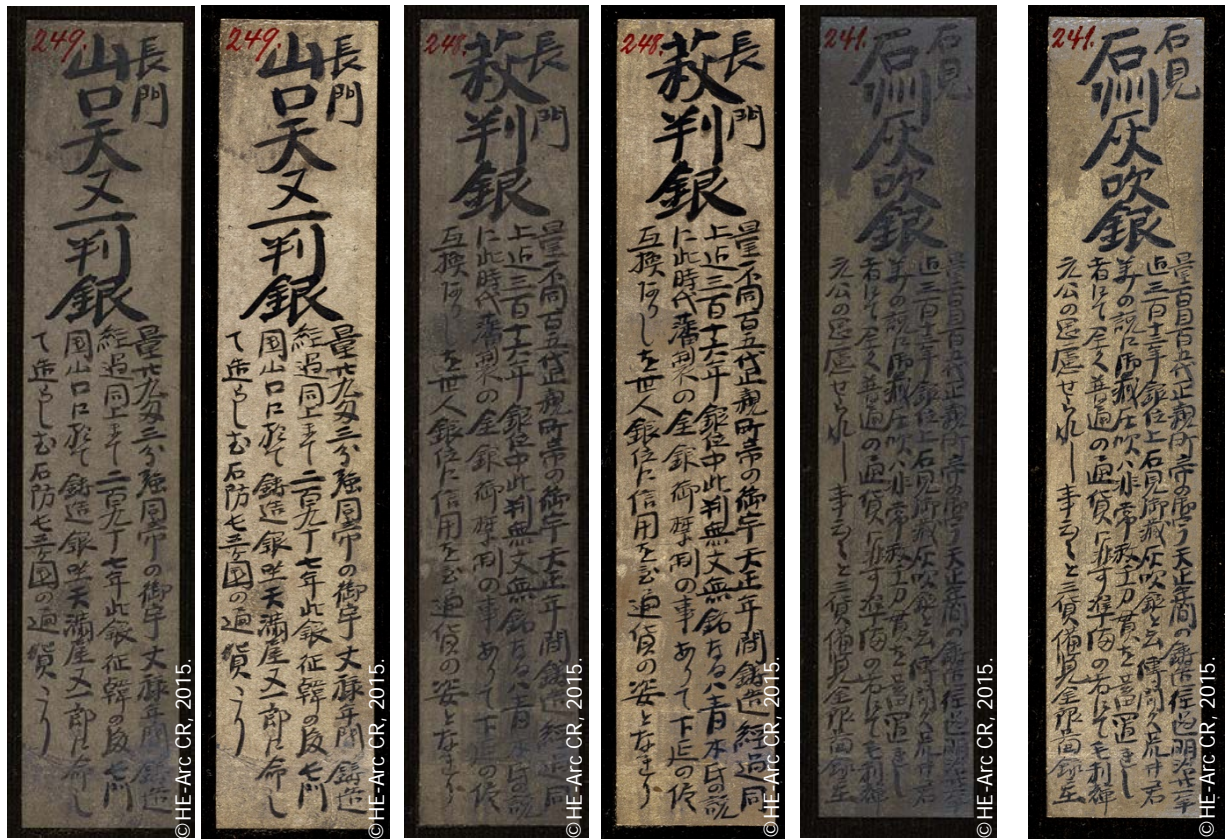 249.
長門
山口天又一判銀
量廿九匁三分強同帝の御宇文禄年間鋳造
経過同上まて二百九十七年此銀征韓の役長門
国山口に於て鋳造銀座天満屋又一郎に命し
て造らしむ石防長五ヶ国の通貨なり
©HE-Arc CR, 2015.
249.
長門
山口天又一判銀
量廿九匁三分強同帝の御宇文禄年間鋳造
経過同上まて二百九十七年此銀征韓の役長門
国山口に於て鋳造銀座天満屋又一郎に命し
て造らしむ石防長五ヶ国の通貨なり
©HE-Arc CR, 2015.
248.
長門
萩判銀
量不同百五代正親町帝の御宇天正年間鋳造経過同
上迄三百十六年銀位中此判無文無銘なるハ青木氏の説
に此時代藩製の金銀御禁制の事ありて下迄の侭
互換なりしを世人銀位に信用を置通貨の姿となれり
©HE-Arc CR, 2015.
248.
長門
萩判銀
量不同百五代正親町帝の御宇天正年間鋳造経過同
上迄三百十六年銀位中此判無文無銘なるハ青木氏の説
に此時代藩製の金銀御禁制の事ありて下迄の侭
互換なりしを世人銀位に信用を置通貨の姿となれり
©HE-Arc CR, 2015.
241.
石見
石州灰吹銀
量百目百五代正親町帝の御宇天正年間の鋳造経過明治廿二年
迄三百十二年銀位上石見御蔵灰吹銀と云
の説に御蔵灰吹ハ非常
者にて全く普通の通貨に非す の名にて毛利輝
元公の せられし事
©HE-Arc CR, 2015.
241.
石見
石州灰吹銀
量百目百五代正親町帝の御宇天正年間の鋳造経過明治廿二年
迄三百十二年銀位上石見御蔵灰吹銀と云
の説に御蔵灰吹ハ非常
者にて全く普通の通貨に非す の名にて毛利輝
元公の せられし事
©HE-Arc CR, 2015.